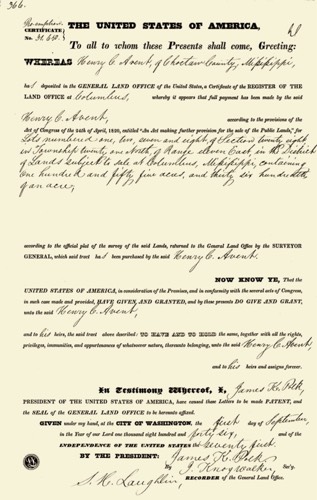 366.
Pre-emption
CERTIFICATE
No. 31,640.
THE UNITED STATES OF AMERICA,
To all to whom these Presents shall come, Greeting:
WHEREAS Henry C. Avent, of Choctaw County, Mississippi,
has deposited in the GENERAL LAND OFFICE of the United States, a Certificate of the REGISTER OF THE
LAND OFFICE at Columbus, whereby it appears that full payment has been made by the said
Henry C. Avent, according to the provisions of the
Act of Congress of the 24th of April, 1820, entitled "An Act making further provision for the sale of the Public Lands," for
Lots numbered one, two, seven and eight, of Section twenty eight,
in Township twenty one North, of Range eleven East, in the District
of Lands subject to sale at Columbus, Mississippi, containing
one hundred and fifty five acres, and thirty six hundredths
of an acre,
according to the official plat of the survey of the said Lands, returned to the General Land Office by the SURVEYOR
GENERAL, which said tract has been purchased by the said Henry C. Avent.
NOW KNOW YE, That the
UNITED STATES OF AMERICA, in consideration of the Premises, and in conformity with the several acts of Congress,
in such case made and provided, HAVE GIVEN AND GRANTED, and by these presents DO GIVE AND GRANT,
unto the said Henry C. Avent,
and to his heirs, the said tract above described: TO HAVE AND TO HOLD the same, together with all the rights,
privileges, immunities, and appurtenances of whatsoever nature, thereunto belonging, unto the said Henry C. Avent,
and to his heirs and assigns forever.
In Testimony Whereof, I, James K. Polk
PRESIDENT OF THE UNITED STATES OF AMERICA, have caused these Letters to be made PATENT, and
the SEAL of the GENERAL LAND OFFICE to be hereunto affixed.
GIVEN under my hand, at the CITY OF WASHINGTON, the first day of September,
in the Year of our Lord one thousand eight hundred and forty six, and of the
INDEPENDENCE OF THE UNITED STATES the seventy first.
BY THE PRESIDENT: James K. Polk
By J. Knox Walker, Sec'y.
S. H. Laughlin, RECORDER of the General Land Office.